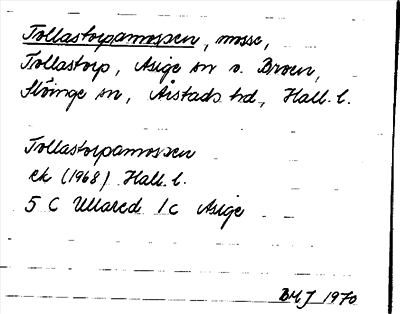 Tollastorpamossen, mosse,
Tollastorp, Asige sn o. Broen,
Slöinge sn, Årstads hd, Hall. l.
Tollastorpamossen
ek (1968) Hall. l.
5 C Ullared 1c Asige
BMJ 1970